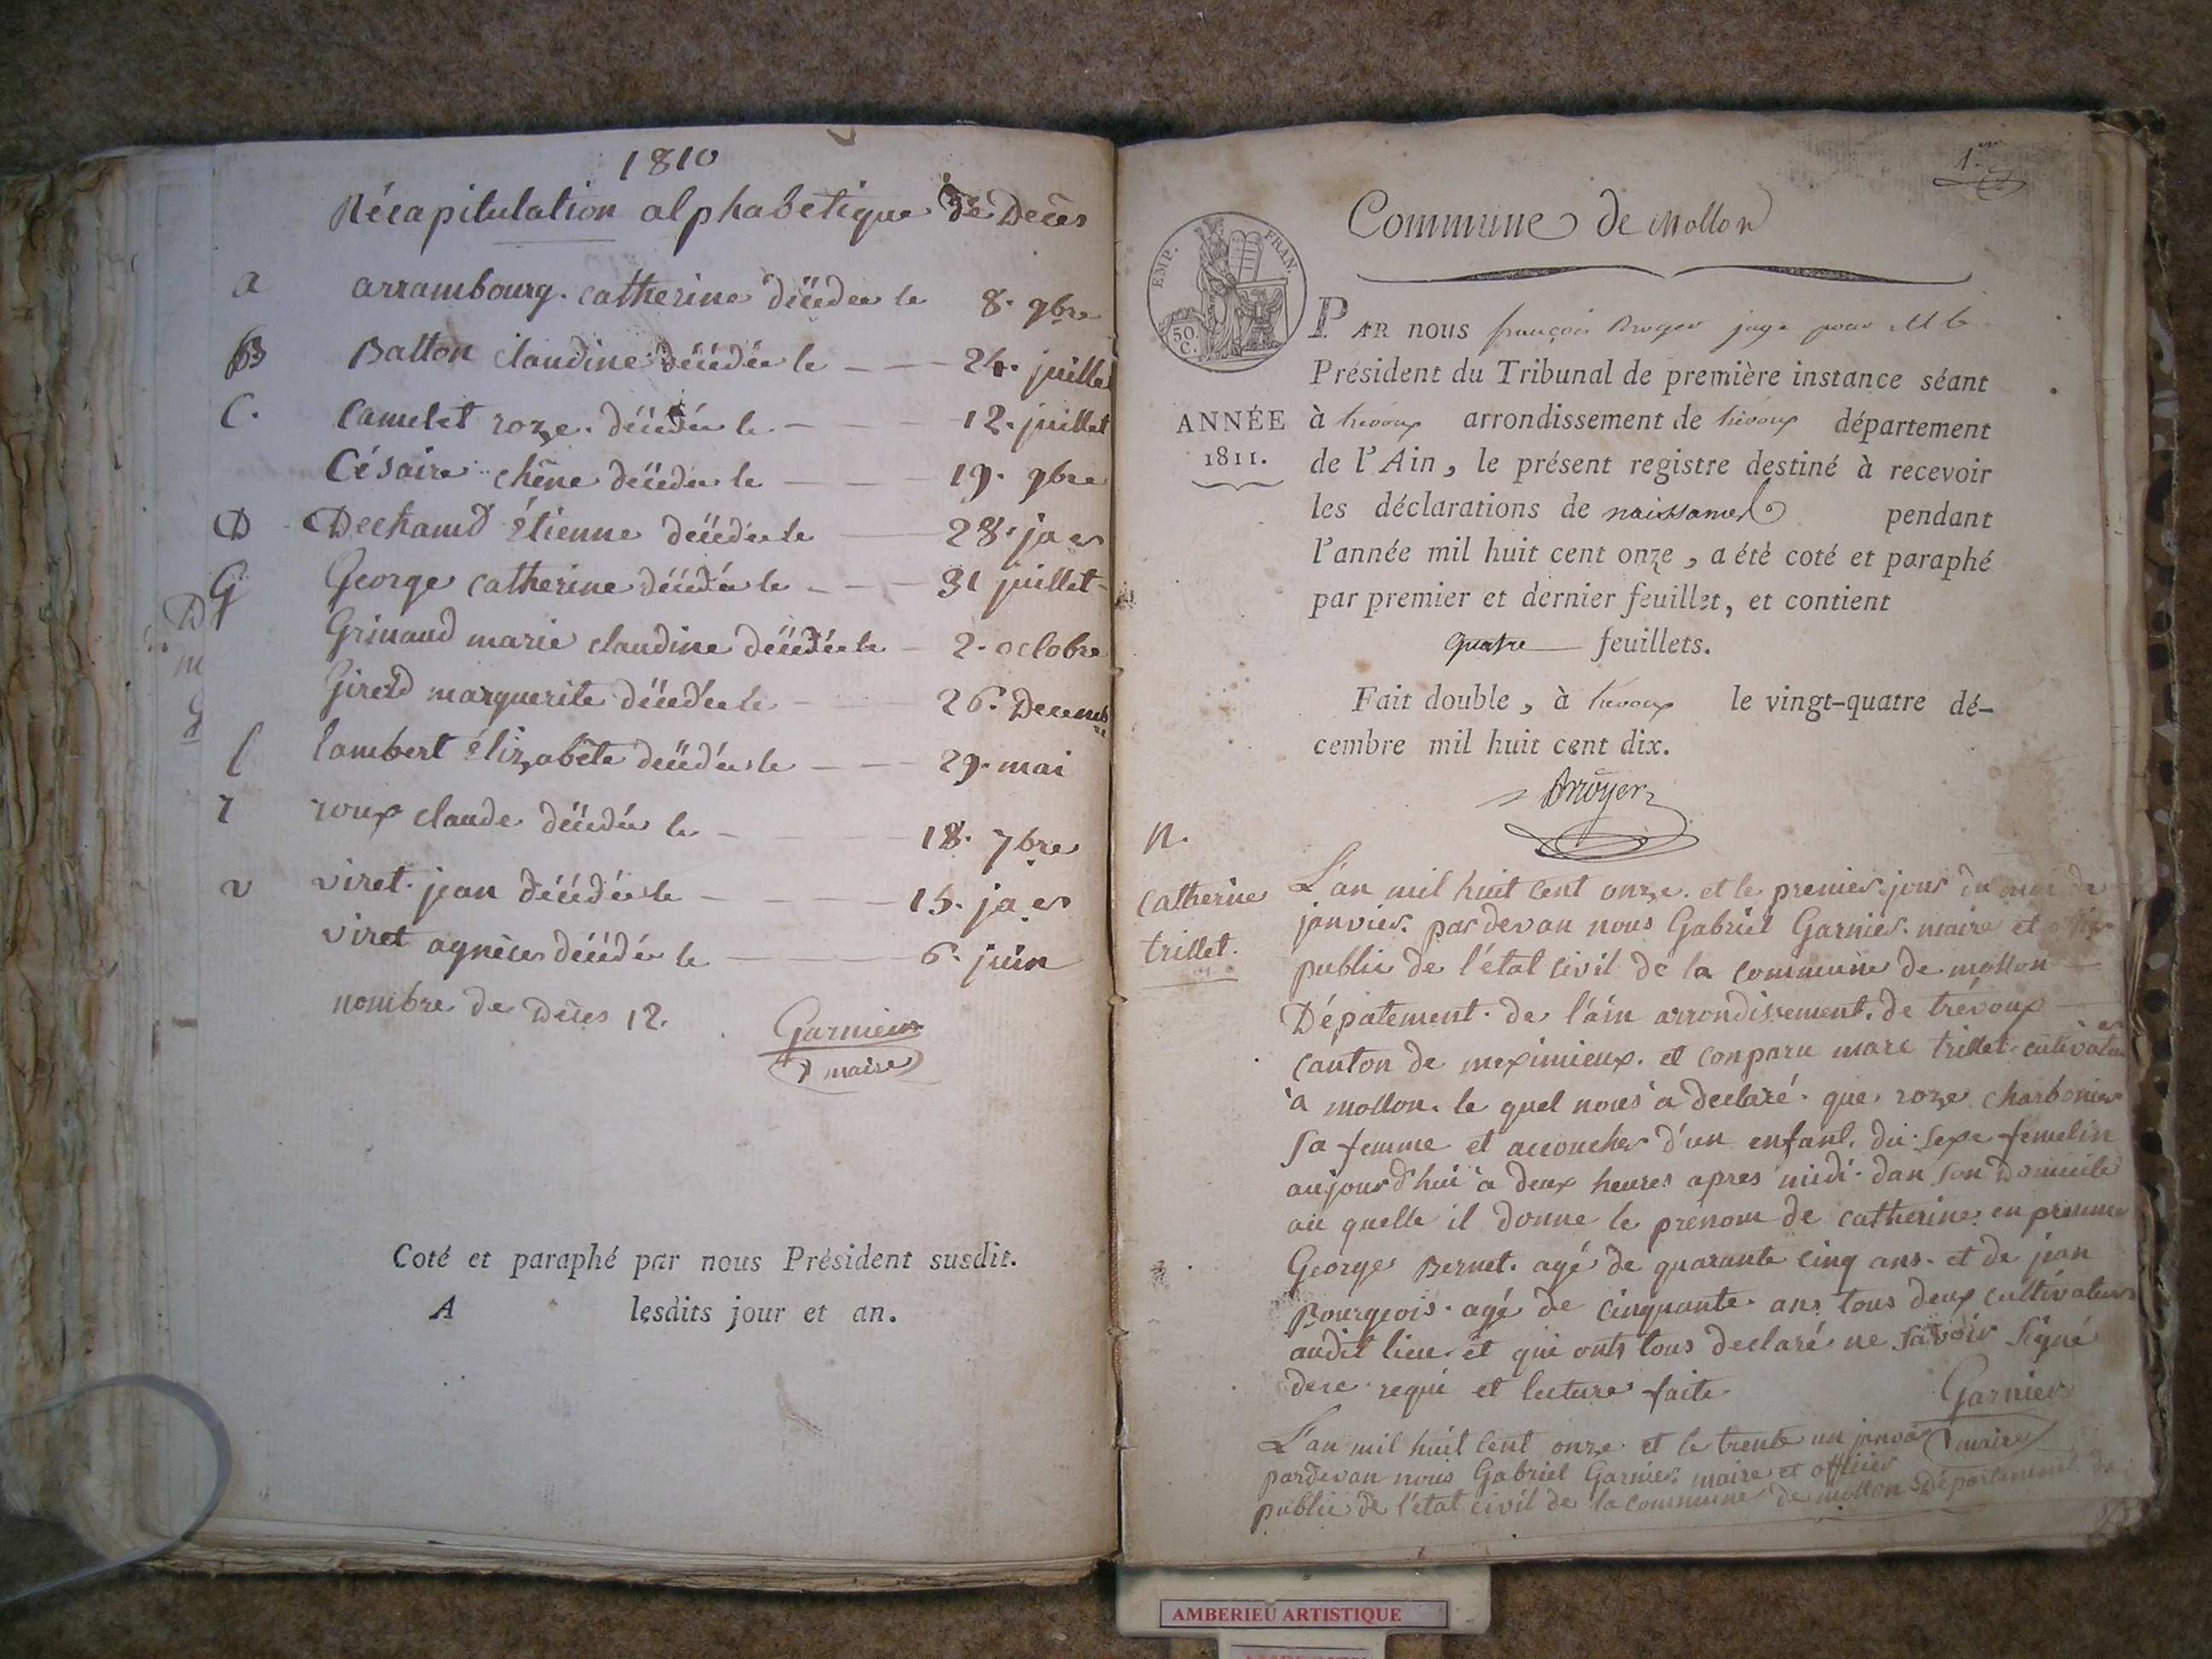 1810
Récapitulation alphabetique de Decès
a arrambourg. catherine décédée le 8. 9bre
B Batton claudine décédée le 24. juillet
C. Camelet roze. décédée le 12. juillet
Césaire chêne décédée le 19. 9bre
D Dechamd étienne décédée le 28. ja er
G George catherine décédée le 31 juillet
Grinaud marie claudine décédée le 2. octobre
Girerd marguerite décédée le 26. Decemb
l lambert élizabête décédée le 29. mai
r roux claude décédé le 18. 7bre
v viret jean décédé le 15. ja er
viret agnèce décédée le 6. juin
nombre de Decès 12.
Garnier
maire
Coté et paraphé par nous Président susdit.
A lesdits jour et an.
1er
Commune de Mollon
EMP. FRAN.
50 C.
PAR nous françois Broyer juge pour M le
Président du Tribunal de première instance séant
ANNÉE 1811.
à trévoux arrondissement de trévoux département
de l'Ain, le présent registre destiné à recevoir
les déclarations de naissances pendant
l'année mil huit cent onze, a été coté et paraphé
par premier et dernier feuillet, et contient
quatre feuillets.
Fait double, à trévoux le vingt-quatre dé-
cembre mil huit cent dix.
Broyer
n.
Catherine
trillet.
L'an mil huit cent onze. et le premier jour du moi de
janvier. par devan nous Gabriel Garnier. maire et
public de l'état civil de la commune de mollon
Dépatement. de l'ain arrondissement. de trévoux
canton de meximieux. et conparu marc trillet cultivateur
a mollon. le quel nous a declaré. que roze charbonier
sa femme et accoucher d'un enfant. du sexe femelin
aujourd'hui a deux heures apres midi. dan son Domicile
au quelle il donne le prenom de catherine. en presence
George Bernet. agé de quarante cinq ans. et de jean
Bourgeois. agé de cinquante ans tous deux cultivateurs
audit lieu et qui onts tous declaré ne savoir signé
dece requi et lecture faite
Garnier
maire
L'an mil huit cent onze et le trente un janvier
pardevan nous Gabriel Garnier maire et officier
public de l'état civil de la commune de mollon Département de
AMBERIEU ARTISTIQUE